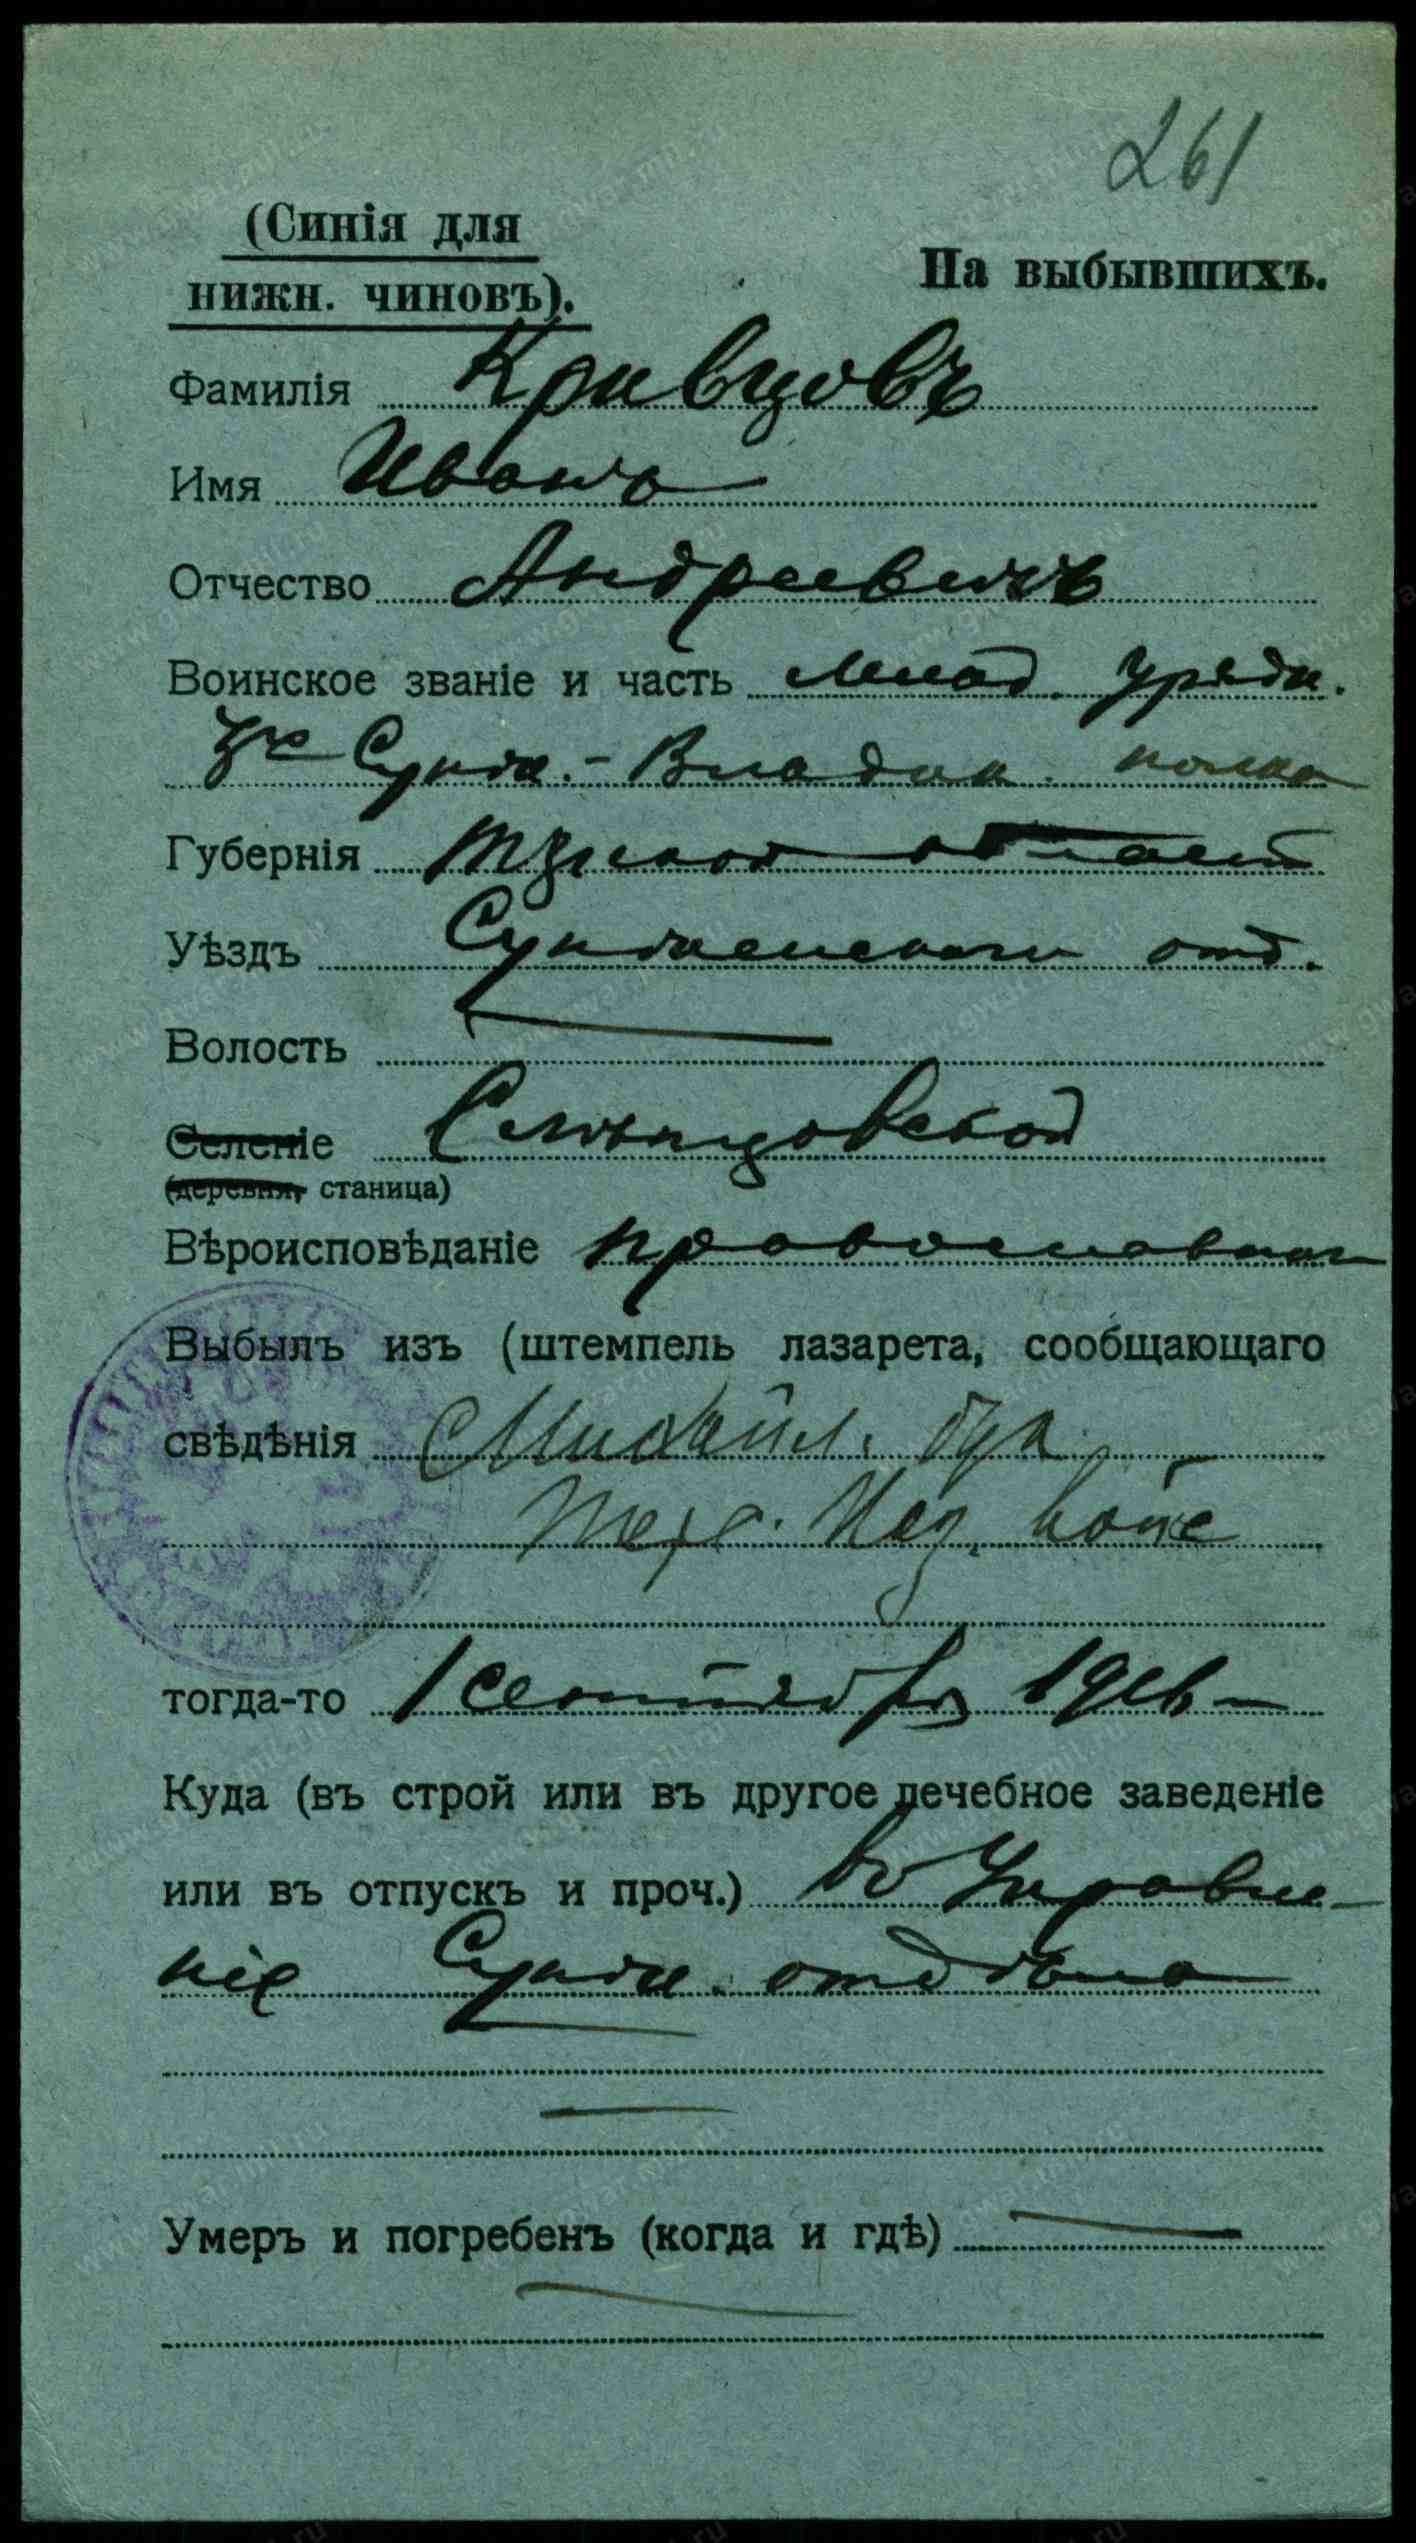 261
(Синія для
нижн. чиновъ).
На выбывшихъ.
Фамилія Кривцовъ
Имя Иванъ
Отчество Андреевичъ
Воинское званіе и часть Млад. урядн.
Сунж.-Владик. полка
Губернія Терской област
Уѣздъ Сунженскаго отд.
Волость
Селеніе Слѣпцовской
(деревня, станица)
Вѣроисповѣданіе православнаг
Выбылъ изъ (штемпель лазарета, сообщающаго
свѣдѣнія Михайл.
Тер. Каз. войс
тогда-то 1 сентября 1916
Куда (въ строй или въ другое лечебное заведеніе
или въ отпускъ и проч.) въ Управле-
ніе Сунж. отдѣла
Умеръ и погребенъ (когда и гдѣ)